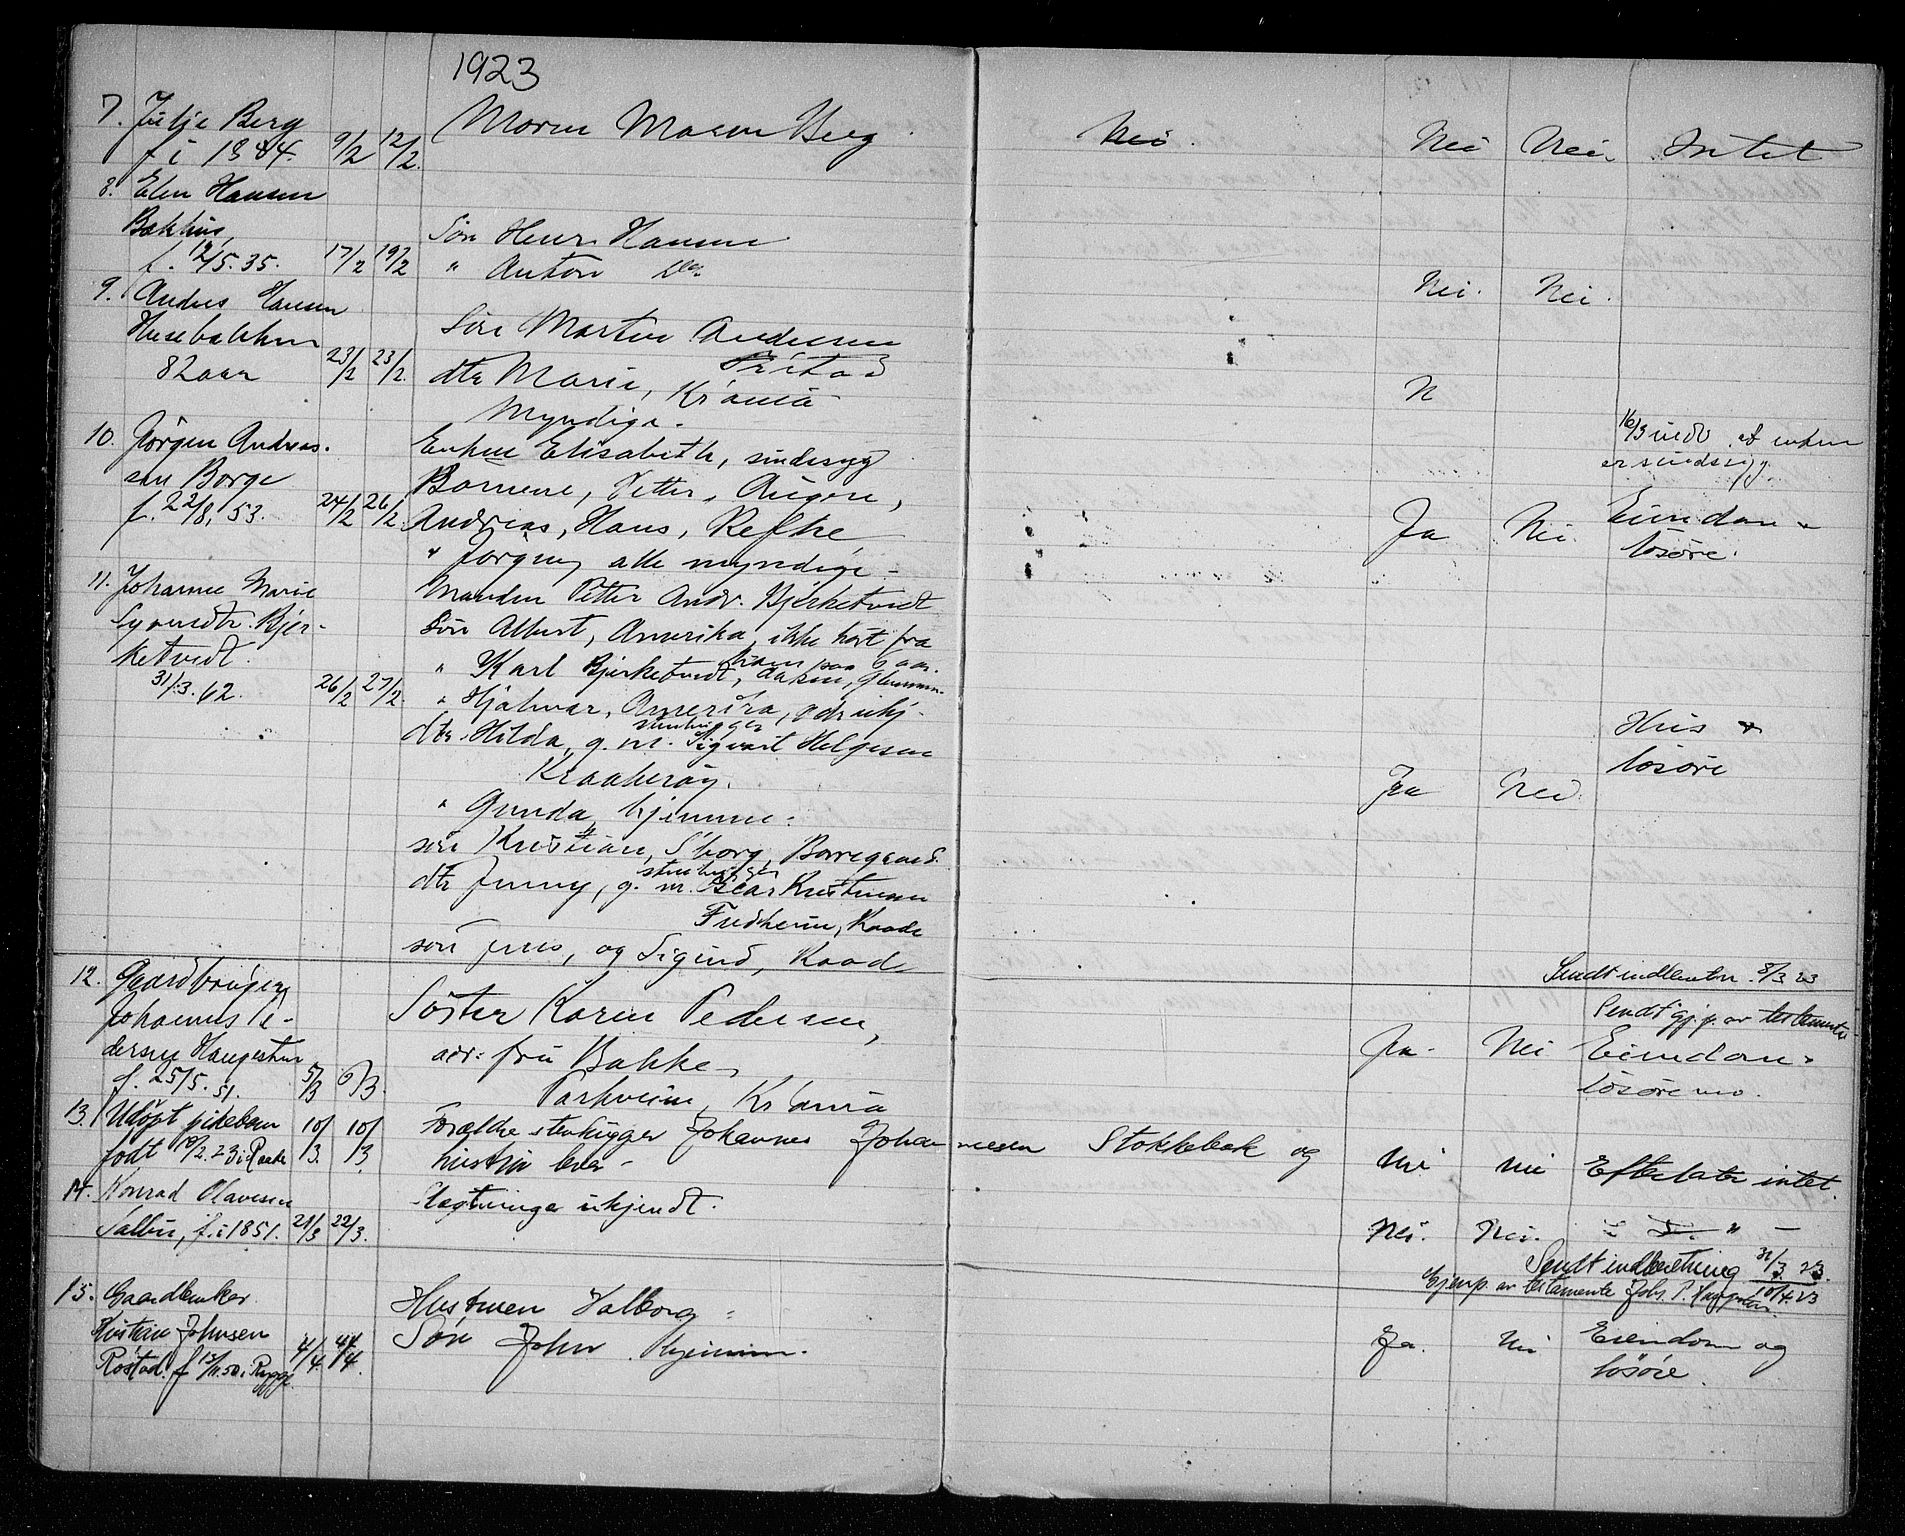 1923
7. Julje Berg
f i 1844. 9/2 12/2. Moren Maren Berg Nei. Nei Nei. Intet
8. Elen Hansen
Bækhus,
f. 12/5. 35. 17/2 19/2 Søn Henr. Hansen
" Anton do. Nei. Nei.
9. Andres Hansen
Husebakken
82 aar 23/2 23/2. Søn Martin Andersen
datr Marie, Kr.ania N
Myndige.
10. Jørgen Andreas-
sen Borge
f. 22/8, 53. 24/2 26/2. Enken Elisabeth, sindssyg
Børnene, Petter, Aagen,
Andreas, Hans, Refke
" Jørgen, alle myndige -
16/3 medd. at enken
er sindssyg.
Ja Nei. Eiendom &
løsøre.
11. Johanne Marie
Syversdtr. Bjer-
ketvedt.
31/3. 62. 26/2 27/2. Manden Petter Andr. Bjerketvedt
Søn Albert, Amerika, ikke hørt fra
ham paa 6 aar.
" Karl Bjerketvedt, Aasen, Glemmen
" Hjalmar, Amerika, adr. ukj.
stenhugger
dtr. Hilda, g. m. Sigvart Helgesen
Kraakerøy.
" Gunda, hjemme.
søn Kristian, S'borg, Borregaard.
stenhugger
dtr Jenny, g. m. Oscar Kristiansen
Fredheim, Raade
søn Jens, og Sigurd, Raade
Ja Nei. Hus &
løsøre
Sendt indberetn. 8/3 23
12. Gaardbruger
Johannes Pe-
dersen Haugesten
f. 25/5. 51. 5/3 6/3. Søster Karen Pedersen,
adr: fru Bakke,
Parkveien, Kr.ania
Sendt gj.p. av testamente
Ja. Nei Eiendom &
løsøre mv.
13. Udøpt pikebarn
født 19/2. 23 i Raade 10/3. 10/3. Forældre stenhugger Johannes Johannesen Stokkebæk og
hustru lever - Nei nei Efterlater intet.
14. Konrad Olavesen
Salbu, f. i 1851. 21/3 22/3. Slegtninger ukjendt. Nei. Nei. " -
Sendt indberetning 31/3. 23.
Gjenp. av testamente Johs. P. Haugesten 10/4. 23
15. Gaardbruker
Kristian Johnsen
Røstad. f 15/11. 50 i Rygge. 4/4. 4/4. Hustruen Valborg
Søn John hjemme. Ja. Nei Eiendom og
løsøre.